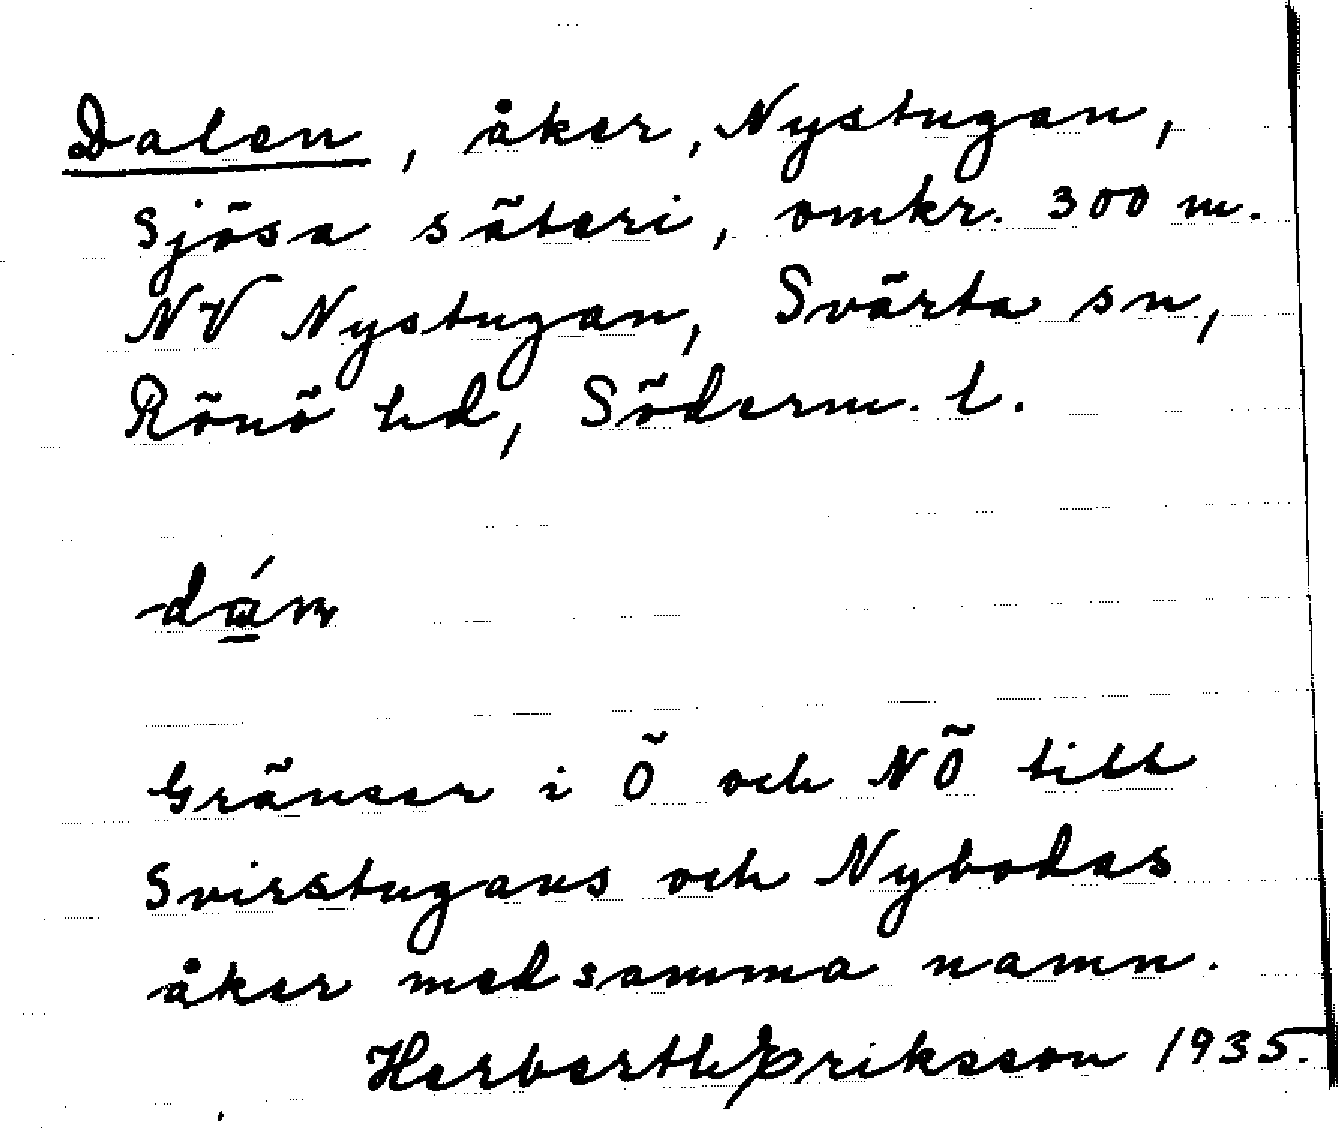 Dalen, åker, Nystugan,
Sjösa säteri, omkr. 300 m.
NV Nystugan, Svärta sn,
Rönö hd, Söderm. l.
Gränser i Ö och NÖ till
Svirstugans och Nybodas
åker med samma namn.
Herberth Eriksson 1935.